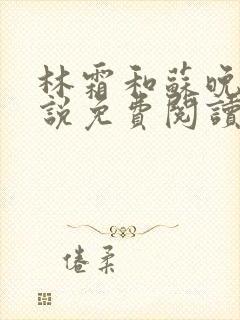 林霜和蘇晚
說免費閱讀
倦柔